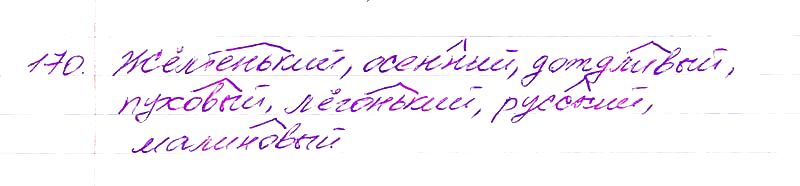 170. Жёлтенький, осенний, дождливый,
пуховый, лёгонький, русский,
малиновый